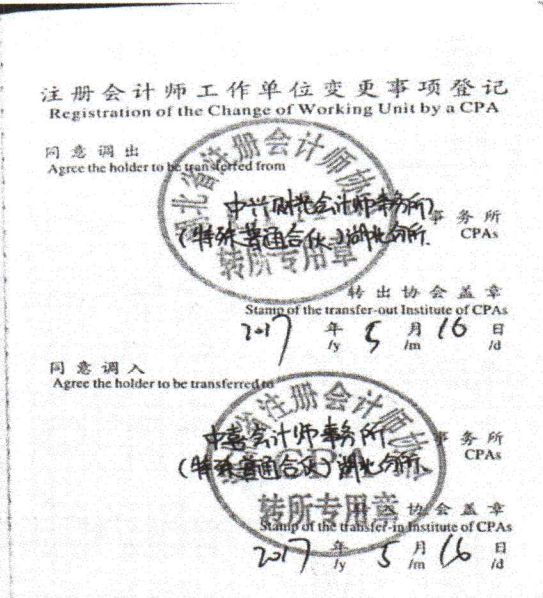 注册会计师工作单位变更事项登记
Registration of the Change of Working Unit by a CPA
同意调出
Agree the holder to be transferred from
湖北省注册会计师协会
中兴财光会计师事务所
事务所
(特殊普通合伙)湖北分所
CPAs
转所专用章
转出协会盖章
Stamp of the transfer-out Institute of CPAs
2017 年 5 月 16 日
/y /m /d
同意调入
Agree the holder to be transferred to
省注册会计师协
中喜会计师事务所
事务所
(特殊普通合伙)湖北分所
CPAs
CPA
转所专用章
转入协会盖章
Stamp of the transfer-in Institute of CPAs
2017 年 5 月 16 日
/y /m /d